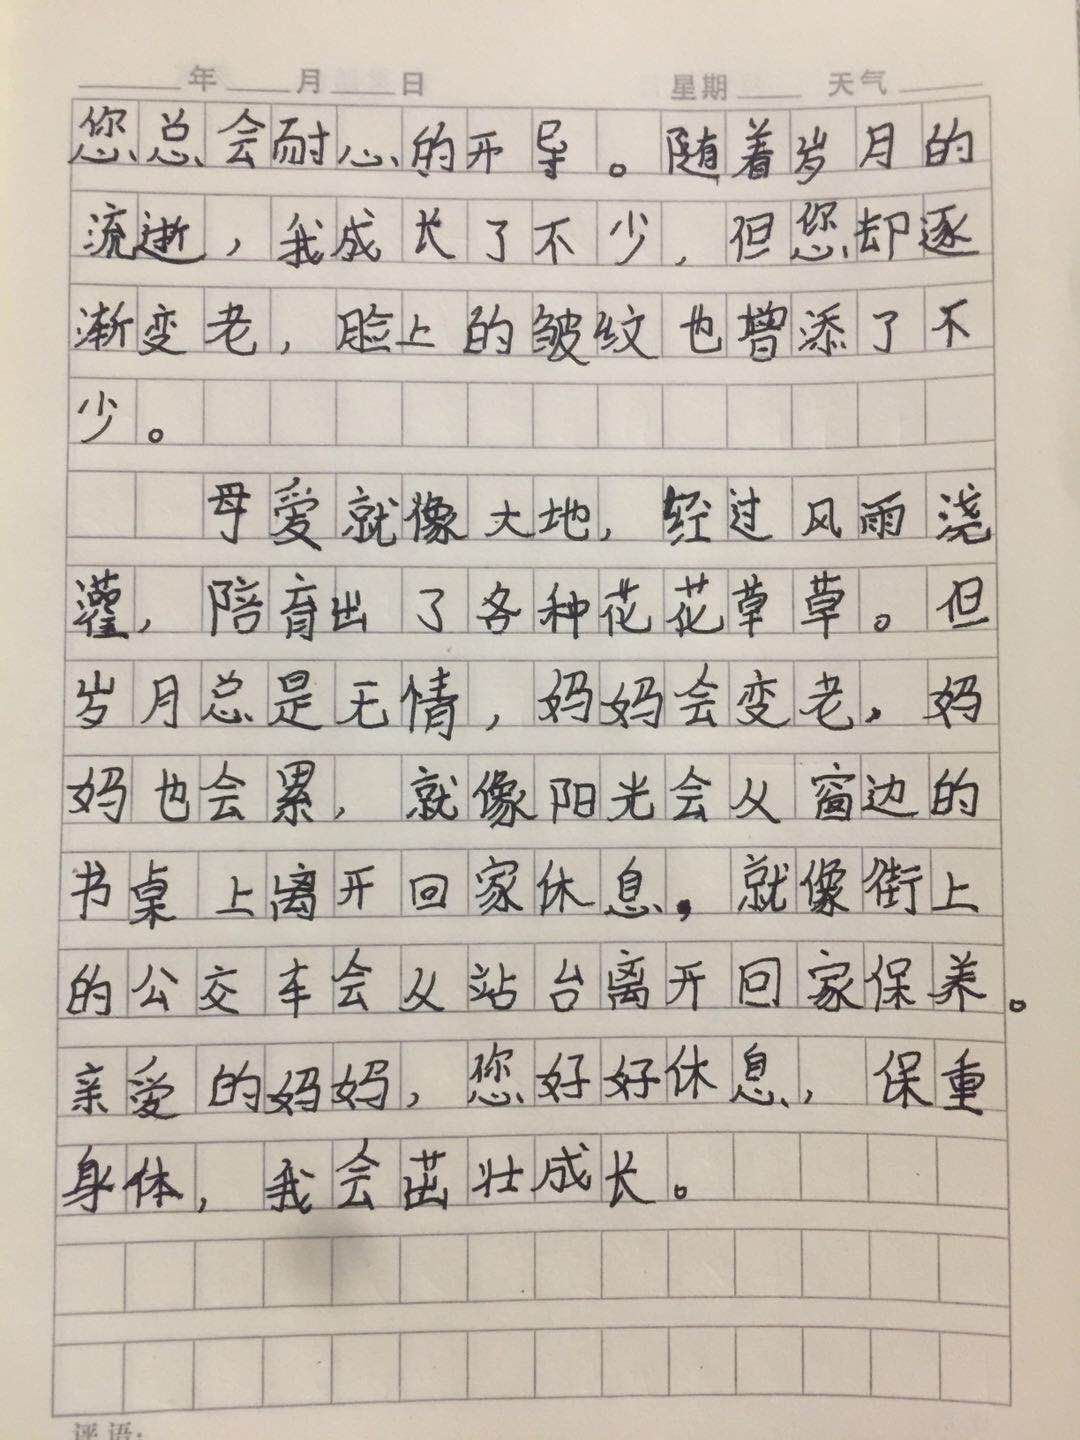 年 月 日 星期 天气
您总会耐心的开导。随着岁月的
流逝，我成长了不少，但您却逐
渐变老，脸上的皱纹也增添了不
少。
母爱就像大地，经过风雨浇
灌，陪育出了各种花花草草。但
岁月总是无情，妈妈会变老，妈
妈也会累，就像阳光会从窗边的
书桌上离开回家休息，就像街上
的公交车会从站台离开回家保养。
亲爱的妈妈，您好好休息，保重
身体，我会茁壮成长。
评语：